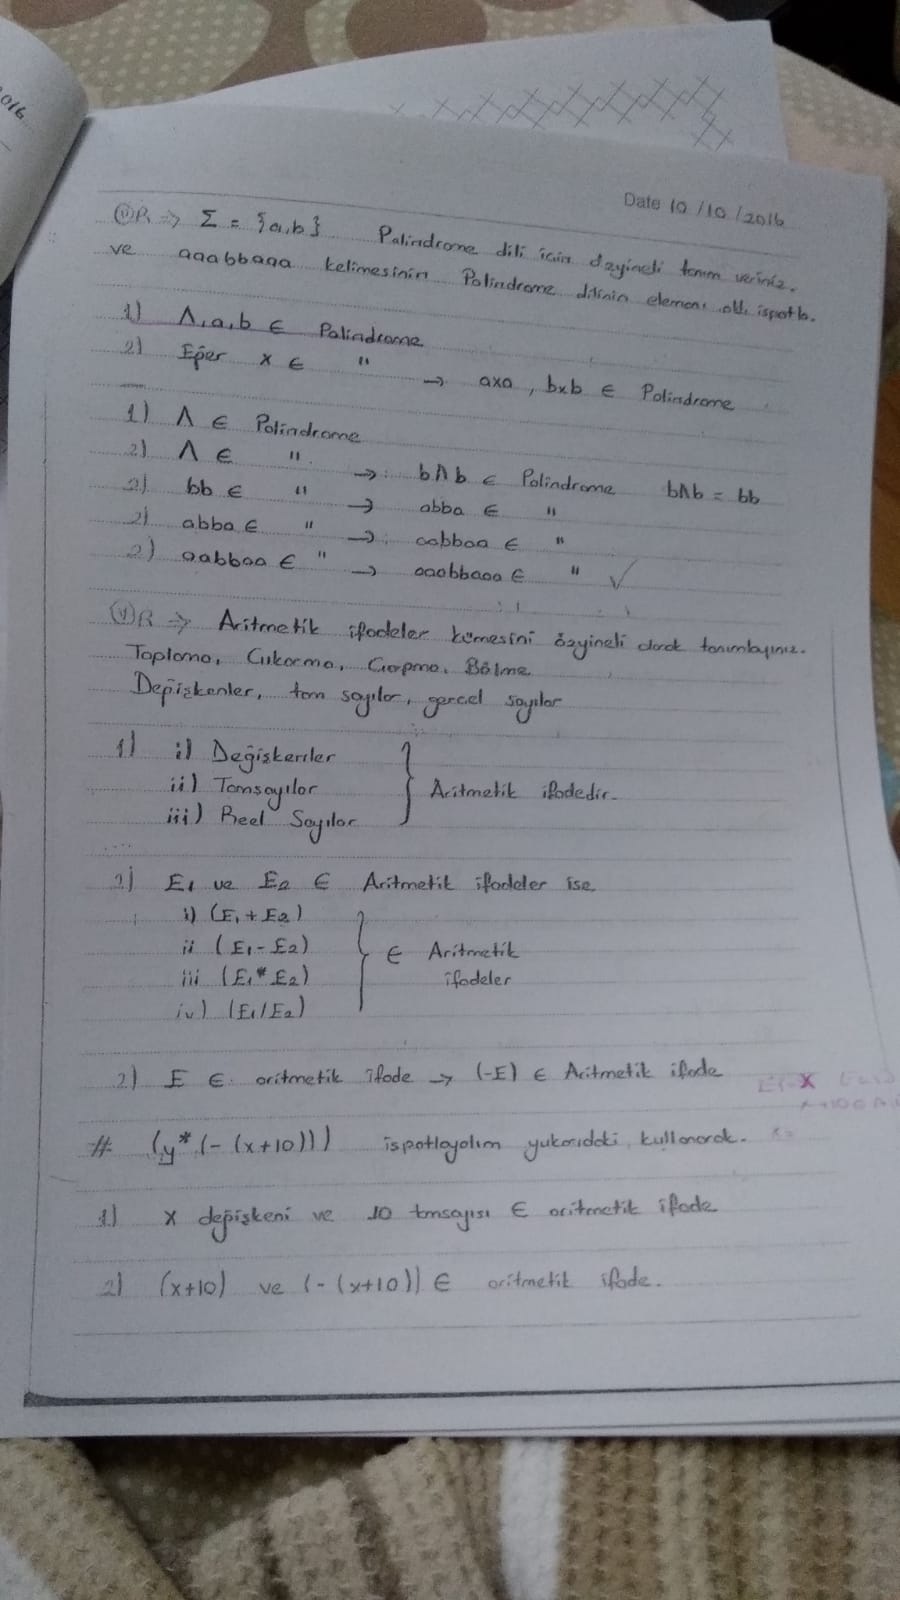 016
Date 10/10/2016
ÖR => Σ = {a,b} Palindrome dili için özyineli tanım veriniz.
ve aaabbaaa kelimesinin Palindrome dilinin elemanı old. ispatla.
1) Λ,a,b ∈ Palindrome
2) Eğer x ∈ " → axa, bxb ∈ Palindrome
1) Λ ∈ Palindrome
2) Λ ∈ " → bΛb ∈ Palindrome bΛb = bb
2) bb ∈ " → abba ∈ "
2) abba ∈ " → aabbaa ∈ "
2) aabbaa ∈ " → aaabbaaa ∈ " ✓
ÖR => Aritmetik ifadeler kümesini özyineli olarak tanımlayınız.
Toplama, Çıkarma, Çarpma, Bölme
Değişkenler, tam sayılar, gerçel sayılar
1) i) Değişkenler
ii) Tamsayılar } Aritmetik ifadedir.
iii) Reel Sayılar
2) E1 ve E2 ∈ Aritmetik ifadeler ise
i) (E1 + E2)
ii (E1 - E2) } ∈ Aritmetik
iii (E1 * E2) ifadeler
iv) (E1/E2)
2) E ∈ aritmetik ifade → (-E) ∈ Aritmetik ifade
# (y*(-(x+10))) ispatlayalım yukarıdaki kullanarak.
1) x değişkeni ve 10 tamsayısı ∈ aritmetik ifade
2) (x+10) ve (-(x+10)) ∈ aritmetik ifade.